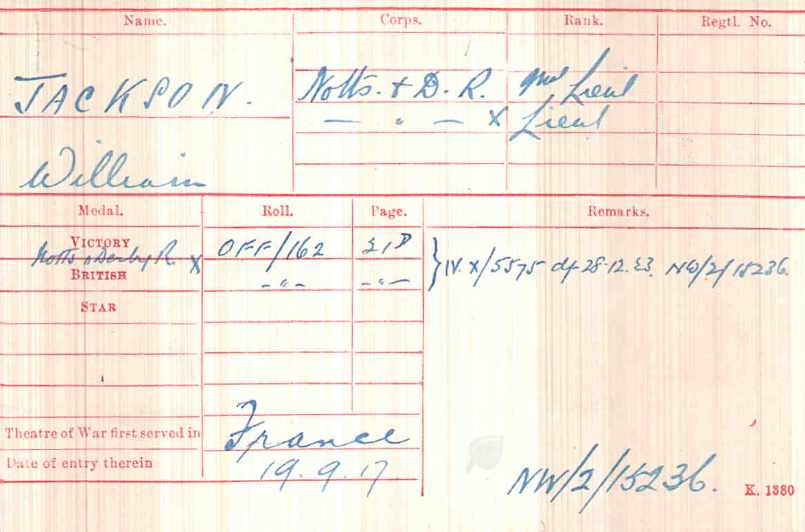 Name. Corps. Rank. Regtl. No.
JACKSON. Notts. & D. R. 2nd Lieut
— " — X Lieut
William
Medal. Roll. Page. Remarks.
VICTORY OFF/162
Notts & Derby R. X
BRITISH — " — — " — } IV. X/5575 df 28.12.23. NW/2/15236.
STAR
Theatre of War first served in France
Date of entry therein 19.9.17
NW/2/15236. K. 1380